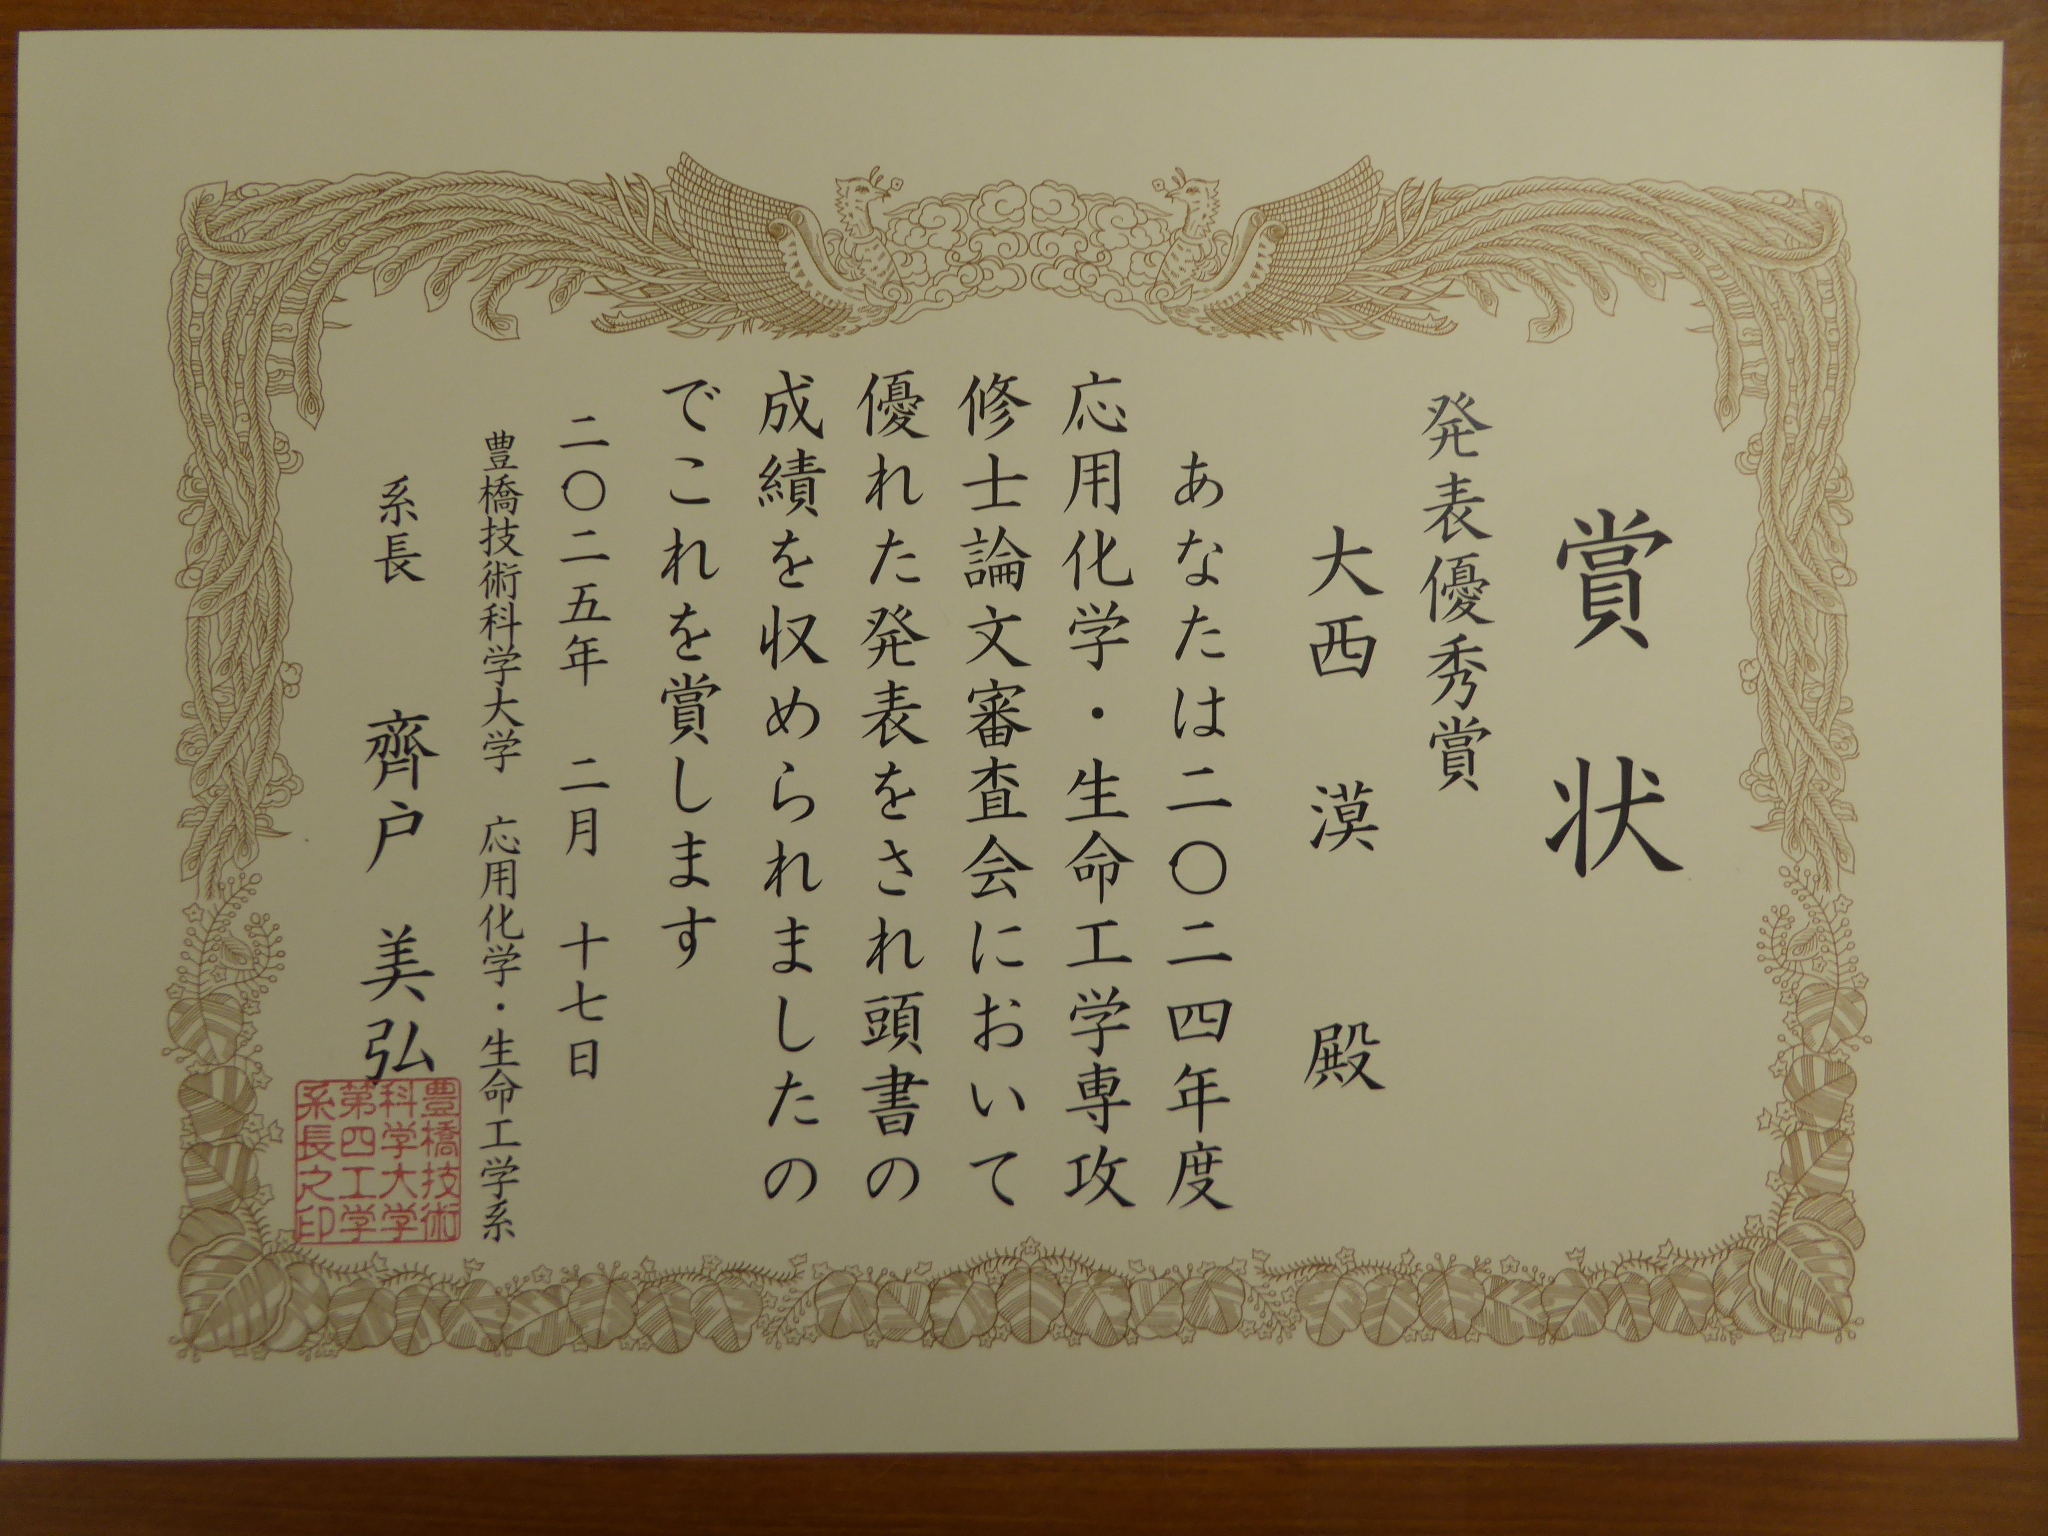 賞状
発表優秀賞
大西 漠 殿
あなたは二〇二四年度
応用化学・生命工学専攻
修士論文審査会において
優れた発表をされ頭書の
成績を収められましたの
でこれを賞します
二〇二五年 二月 十七日
豊橋技術科学大学 応用化学・生命工学系
系長 齊戸 美弘
豊橋技術
科学大学
第四工学
系長之印